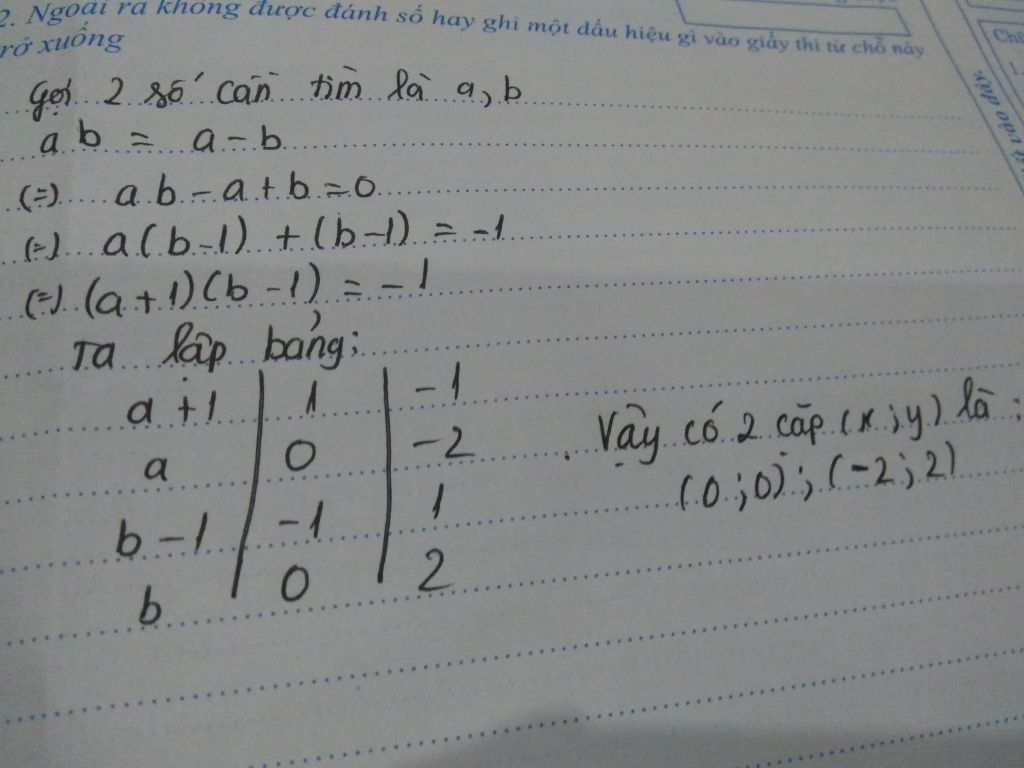 2. Ngoài ra không được đánh số hay ghi một dấu hiệu gì vào giấy thi từ chỗ này
trở xuống
Gọi 2 số cần tìm là a, b
ab = a - b
(=) ab - a + b = 0
(=) a(b-1) + (b-1) = -1
(=) (a+1)(b-1) = -1
Ta lập bảng;
a + 1 | 1 | -1
a | 0 | -2
b - 1 | -1 | 1
b | 0 | 2
Vậy có 2 cặp (x;y) là:
(0;0); (-2;2)